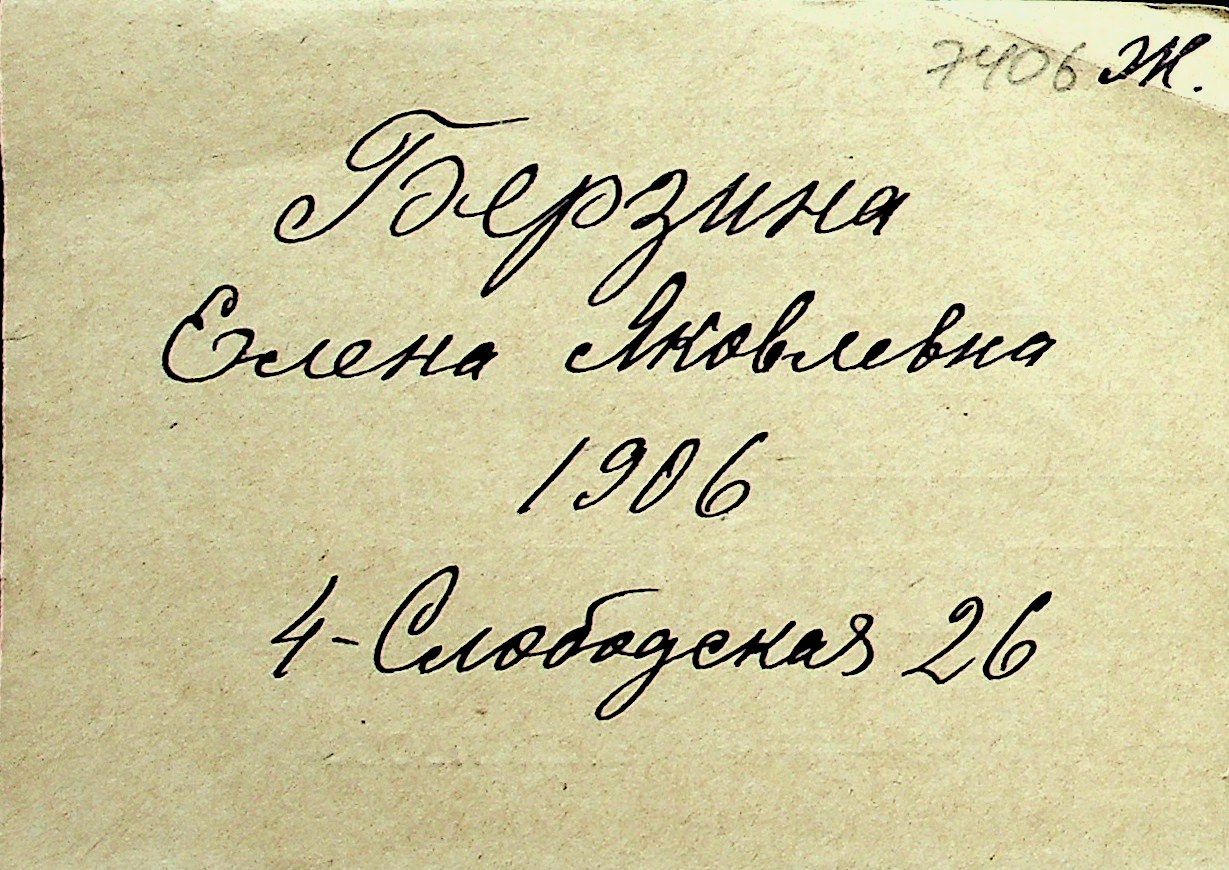 7406 Ж.
Берзина
Елена Яковлевна
1906
4-Слободская 26